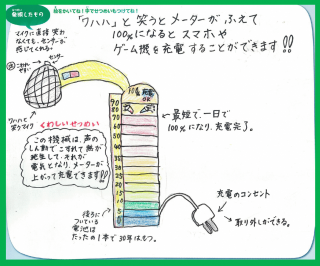 発明したもの
絵をかいてね!字でせつめいもつけてね!
「ワハハ」と笑うとメーターが ふえて
100%になると スマホや
ゲーム機を充電することができます!!
マイクに直接笑わ
なくても、センサーが
感じてくれる。
センサー
ワハハと
笑うマイク
くわしいせつめい
この機械は、声の
しん動でこすれて熱が
発生して、それが
電気となり、メーターが
上がって充電できます!!
100%
充電
OK
90
80
70
60
50
40
30
20
10
5
0
←最短で、一日で
100%になり、充電完了。
後ろに
ついている
電池は
たったの1本で30年はもつ。
充電のコンセント
→取り外しができる。